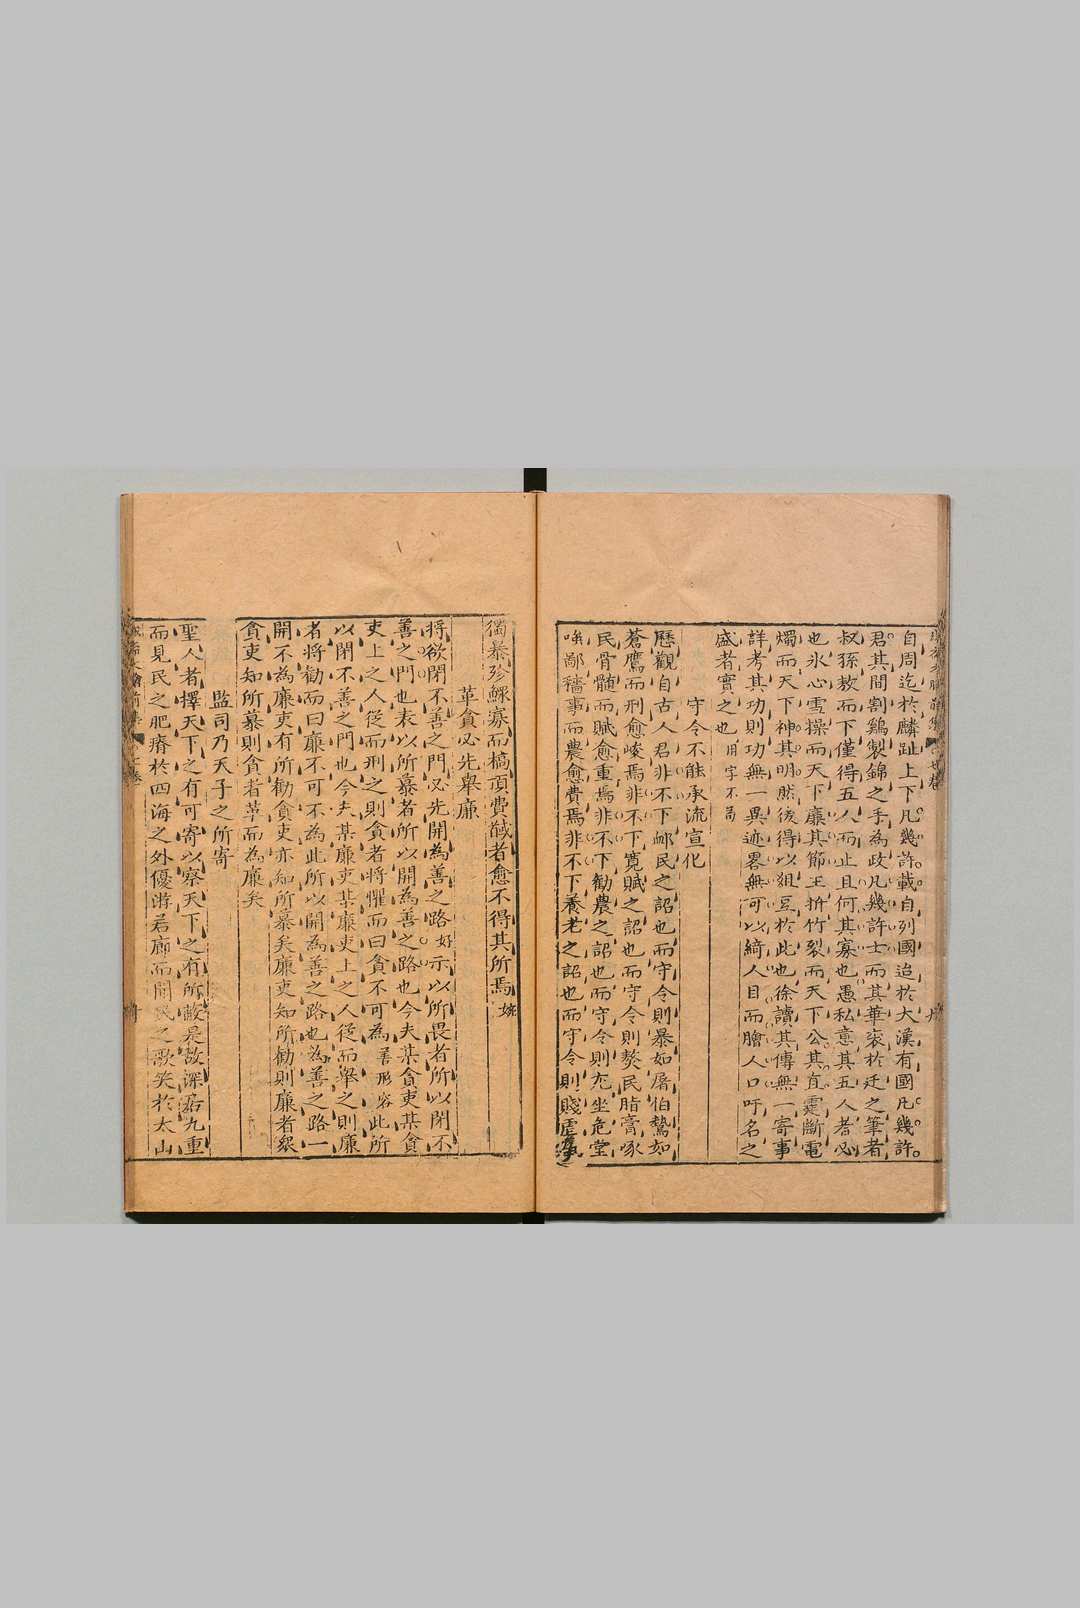 自周迄於麟趾上下凡幾許載自列國迨於大漢有國凡幾許
君其間割鷄製錦之手為政凡幾許士而其華衮於迂之筆者
叔孫敖而下僅得五人而止且何其寡也愚私意其五人者必
也氷心雪操而天下廉其節玉折竹裂而天下公其直霆斷電
燭而天下神其明然後得以俎豆於此也徐讀其傳無一寄事
詳考其功則功無一異迹畧無可以綺人目而膾人口吁名之
盛者實之也用字不苟
守令不能承流宣化
歷觀自古人君非不下卹民之詔也而守令則暴如屠伯鷙如
蒼鷹而刑愈峻焉非不下寛賦之詔也而守令則熬民脂膏啄
民骨髄而賦愈重焉非不下勸農之詔也而守令則尨坐危堂
喉鄙穡事而農愈費焉非不下養老之詔也而守令則賤虐
獨暴殄鰥寡而槁項黄馘者愈不得其所焉
革貪必先舉廉
將欲閉不善之門必先開為善之路好示以所畏者所以閉不
善之門也表以所慕者所以開為善之路也今夫某貪吏某貪
吏上之人從而刑之則貪者將懼而曰貪不可為善形容此所
以閉不善之門也今夫某廉吏某廉吏上之人從而舉之則廉
者將勸而曰廉不可不為此所以開為善之路也為善之路一
開不為廉吏有所勸貪吏亦知所慕矣廉吏知所勸則廉者衆
貪吏知所慕則貪者革而為廉矣
監司乃天子之所寄
聖人者擇天下之有可寄以察天下之有所蔽是故深居九重
而見民之肥瘠於四海之外優游若廊而聞民之歌笑於太山